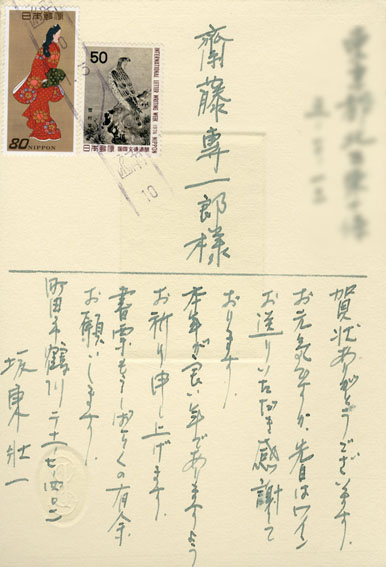 齋藤専一郎様
賀状ありがとうございます。
お元気ですか、先日はワイン
お送りいただき感謝して
おります。
本年が良い年でありますよう
お祈り申し上げます。
書票もうしばらくの有余
お願いします。
町田市鶴川二ー十一ー七ー四〇二
坂東壮一
日本郵便
80 NIPPON
50
INTERNATIONAL LETTER WRITING WEEK 1976 NIPPON
日本郵便 国際文通週間
10